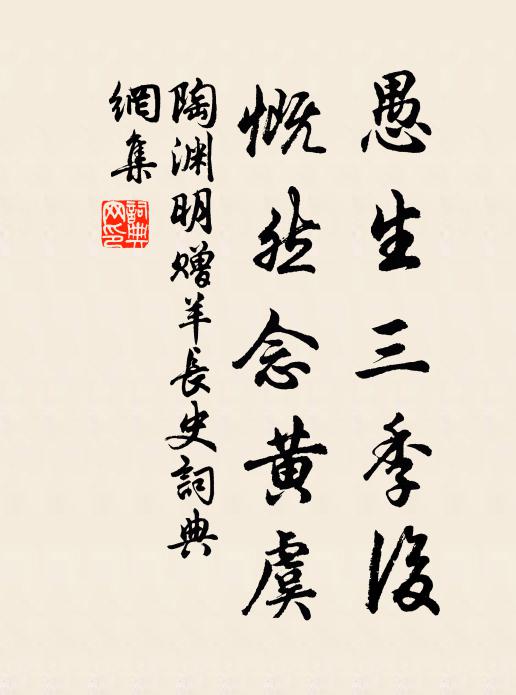 愚生三季後
慨然念黃虞
陶渊明贈羊長史詞典
網集
詞典
网印